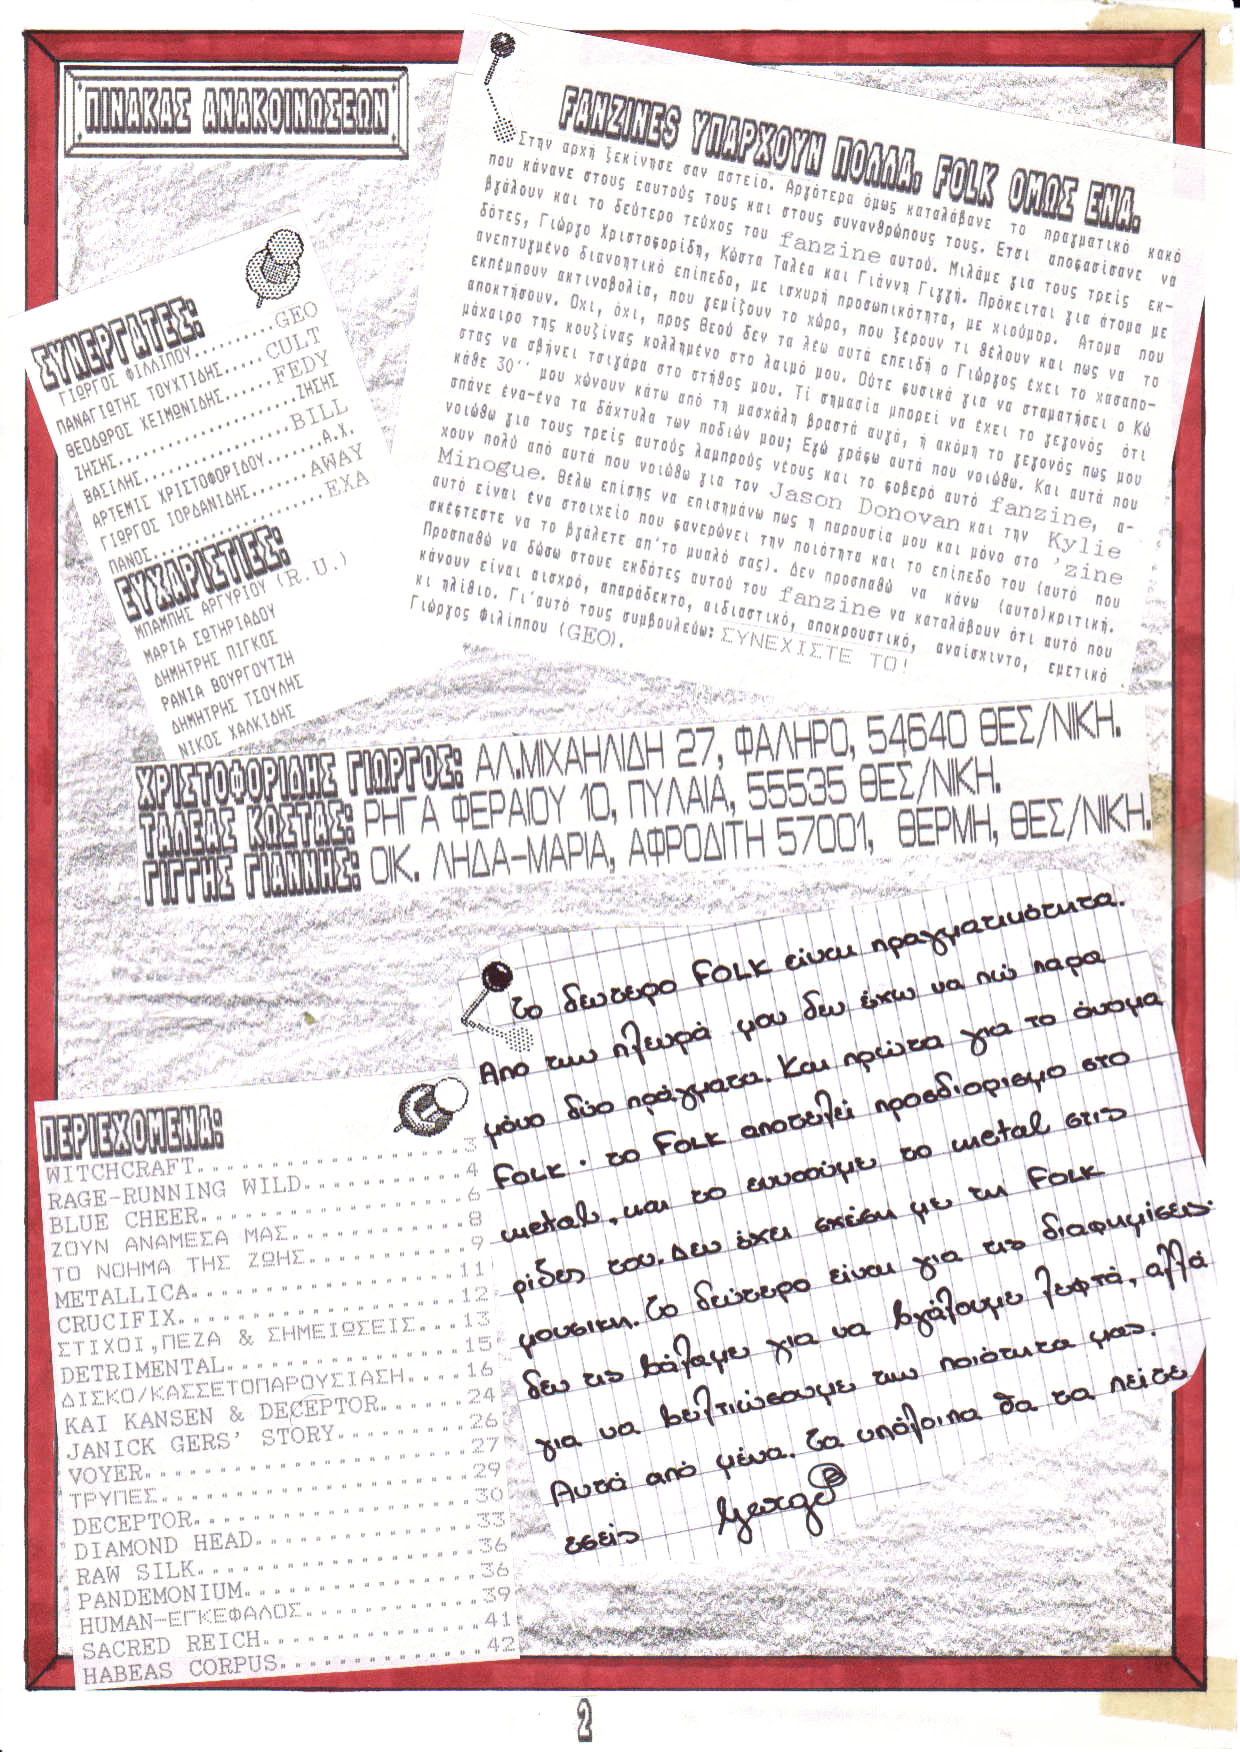 ΠΙΝΑΚΑΣ ΑΝΑΚΟΙΝΩΣΕΩΝ
FANZINES ΥΠΑΡΧΟΥΝ ΠΟΛΛΑ. FOLK ΟΜΩΣ ΕΝΑ.
Στην αρχή ξεκίνησε σαν αστείο. Αργότερα όμως καταλάβανε το πραγματικό κακό
που κάνανε στους εαυτούς τους και στους συνανθρώπους τους. Ετσι αποφασίσανε να
βγάλουν και το δεύτερο τεύχος του fanzine αυτού. Μιλάμε για τους τρείς εκ-
δότες, Γιώργο Χριστοφορίδη, Κώστα Ταλέα και Γιάννη Γιγγή. Πρόκειται για άτομα με
ανεπτυγμένο διανοητικό επίπεδο, με ισχυρή προσωπικότητα, με χιούμορ. Ατομα που
εκπέμπουν ακτινοβολία, που γεμίζουν το χώρο, που ξέρουν τι θέλουν και πως να το
αποκτήσουν. Οχι, όχι, προς θεού δεν τα λέω αυτά επειδή ο Γιώργος έχει το χασαπο-
μάχαιρο της κουζίνας κολλημένο στο λαιμό μου. Ούτε φυσικά για να σταματήσει ο Κώ
στας να σβήνει τσιγάρα στο στήθος μου. Τί σημασία μπορεί να έχει το γεγονός ότι
κάθε 30'' μου χώνουν κάτω από τη μασχάλη βραστά αυγά, ή ακόμη το γεγονός πως μου
σπάνε ένα-ένα τα δάχτυλα των ποδιών μου; Εγώ γράφω αυτά που νοιώθω. Και αυτά που
νοιώθω για τους τρείς αυτούς λαμπρούς νέους και το φοβερό αυτό fanzine, α-
χουν πολύ από αυτά που νοιώθω για τον Jason Donovan και την Kylie
Minogue. Θέλω επίσης να επισημάνω πως η παρουσία μου και μόνο στο 'zine
αυτό είναι ένα στοιχείο που φανερώνει την ποιότητα και το επίπεδο του (αυτό που
σκέφτεστε να το βγάλετε απ'το μυαλό σας). Δεν προσπαθώ να κάνω (αυτο)κριτική.
Προσπαθώ να δώσω στους εκδότες αυτού του fanzine να καταλάβουν ότι αυτό που
κάνουν είναι αισχρό, απαράδεκτο, αιδιαστικό, αποκρουστικό, αναίσχιντο, εμετικό
κι ηλίθιο. Γι'αυτό τους συμβουλεύω: ΣΥΝΕΧΙΣΤΕ ΤΟ!
Γιώργος Φιλίππου (GEO).
ΣΥΝΕΡΓΑΤΕΣ:
ΓΙΩΡΓΟΣ ΦΙΛΙΠΠΟΥ.........GEO
ΠΑΝΑΓΙΩΤΗΣ ΤΟΥΧΤΙΔΗΣ.....CULT
ΘΕΟΔΩΡΟΣ ΧΕΙΜΩΝΙΔΗΣ.....FEDY
ΖΗΣΗΣ....................ΖΗΣΗΣ
ΒΑΣΙΛΗΣ..................BILL
ΑΡΤΕΜΙΣ ΧΡΙΣΤΟΦΟΡΙΔΟΥ......Α.Χ.
ΓΙΩΡΓΟΣ ΙΟΡΔΑΝΙΔΗΣ.......AWAY
ΠΑΝΟΣ....................EXA
ΕΥΧΑΡΙΣΤΙΕΣ:
ΜΠΑΜΠΗΣ ΑΡΓΥΡΙΟΥ (R.U.)
ΜΑΡΙΑ ΣΩΤΗΡΙΑΔΟΥ
ΔΗΜΗΤΡΗΣ ΠΙΓΚΟΣ
ΡΑΝΙΑ ΒΟΥΡΓΟΥΤΖΗ
ΔΗΜΗΤΡΗΣ ΤΣΟΥΛΗΣ
ΝΙΚΟΣ ΧΑΛΚΙΔΗΣ
ΧΡΙΣΤΟΦΟΡΙΔΗΣ ΓΙΩΡΓΟΣ: ΑΛ.ΜΙΧΑΗΛΙΔΗ 27, ΦΑΛΗΡΟ, 54640 ΘΕΣ/ΝΙΚΗ.
ΤΑΛΕΑΣ ΚΩΣΤΑΣ: ΡΗΓΑ ΦΕΡΑΙΟΥ 10, ΠΥΛΑΙΑ, 55535 ΘΕΣ/ΝΙΚΗ.
ΓΙΓΓΗΣ ΓΙΑΝΝΗΣ: ΟΙΚ. ΛΗΔΑ-ΜΑΡΙΑ, ΑΦΡΟΔΙΤΗ 57001, ΘΕΡΜΗ, ΘΕΣ/ΝΙΚΗ.
Το δευτερο FOLK είναι πραγματικότητα.
Απο την πλευρά μου δεν έχω να πώ παρα
μόνο δύο πράγματα. Και πρώτα για το όνομα
FOLK. το FOLK αποτελεί προσδιορισμο στο
metal, και το εννοούμε το metal στις
ρίζες του. Δεν έχει σχέση με τη FOLK
μουσικη. Το δεύτερο είναι για τις διαφημίσεις.
δεν τις βάλαμε για να βγάλουμε λεφτά, αλλά
για να βελτιώσουμε την ποιότητα μας.
Αυτά από μένα. Τα υπόλοιπα θα τα πείτε
εσείς George
ΠΕΡΙΕΧΟΜΕΝΑ:
WITCHCRAFT..................3
RAGE-RUNNING WILD...........4
BLUE CHEER..................6
ΖΟΥΝ ΑΝΑΜΕΣΑ ΜΑΣ............8
ΤΟ ΝΟΗΜΑ ΤΗΣ ΖΩΗΣ...........9
METALLICA..................11
CRUCIFIX...................12
ΣΤΙΧΟΙ,ΠΕΖΑ & ΣΗΜΕΙΩΣΕΙΣ...13
DETRIMENTAL................15
ΔΙΣΚΟ/ΚΑΣΣΕΤΟΠΑΡΟΥΣΙΑΣΗ....16
KAI KANSEN & DECEPTOR......24
JANICK GERS' STORY.........26
VOYER......................27
ΤΡΥΠΕΣ.....................29
DECEPTOR...................30
DIAMOND HEAD...............33
RAW SILK...................36
PANDEMONIUM................36
HUMAN-ΕΓΚΕΦΑΛΟΣ............39
SACRED REICH...............41
HABEAS CORPUS..............42
2